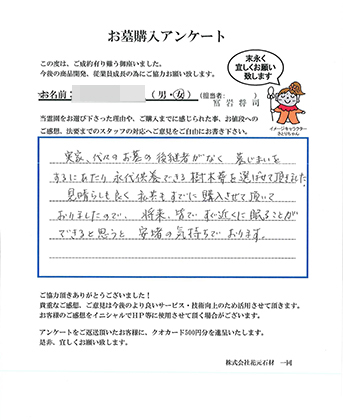 お墓購入アンケート
この度は、ご成約有り難う御座いました。
今後の商品開発、従業員成長の為にご協力お願い致します。
末永く
宜しくお願い
致します
お名前: (男・女) (担当者: 冨岩将司 )
イメージキャラクター
さとりちゃん
当霊園をお選び下さった理由や、ご購入までに感じられた事、お値段への
ご感想、法要までのスタッフの対応へご意見をご自由にお書き下さい。
実家、代々のお墓の後継者がなく墓じまいを
するにあたり永代供養できる樹木葬を選ばせて頂きました
見晴らしも良く私共もすでに購入させて頂いて
おりましたので、将来、皆ですぐ近くに眠ることが
できると思うと安堵の気持ちでおります。
ご協力頂きありがとうございました！
貴重なご感想、ご意見は今後のより良いサービス・技術向上のため活用させて頂きます。
お客様のご感想をイニシャルでHP等に使用させて頂く場合がございます。
アンケートをご返送頂いたお客様に、クオカード500円分を進呈いたします。
是非、宜しくお願い致します。
株式会社花元石材 一同